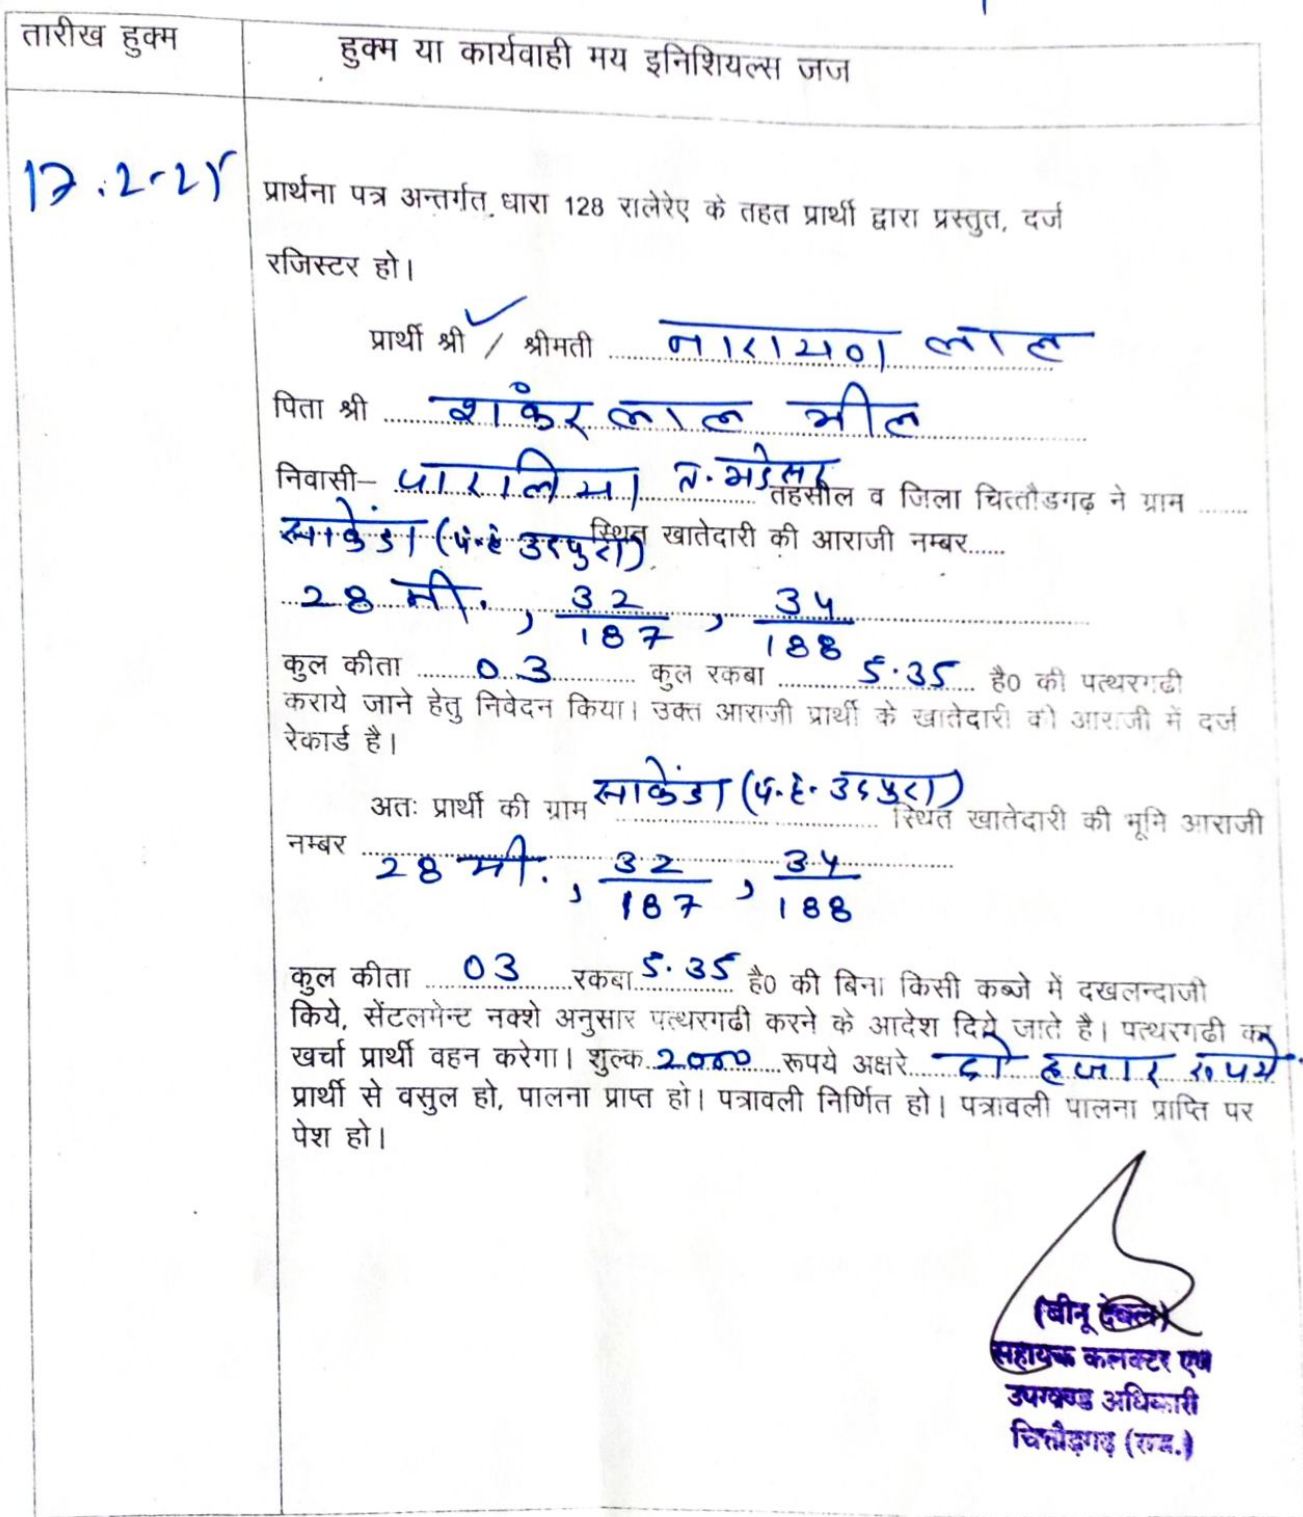 तारीख हुक्म
हुक्म या कार्यवाही मय इनिशियल्स जज
17.2-25
प्रार्थना पत्र अन्तर्गत धारा 128 रालेरेए के तहत प्रार्थी द्वारा प्रस्तुत, दर्ज
रजिस्टर हो।
प्रार्थी श्री ✓ / श्रीमती नारायण लाल
पिता श्री शंकर लाल भील
निवासी– पारालिया त. भडेसर तहसील व जिला चित्तौडगढ़ ने ग्राम ........
साकेंडा (प.ह उदपुरा) स्थित खातेदारी की आराजी नम्बर......
28 मी., 32/187, 34/188
कुल कीता 03 कुल रकबा 5.35 है0 की पत्थरगढी
कराये जाने हेतु निवेदन किया। उक्त आराजी प्रार्थी के खातेदारी की आराजी में दर्ज
रेकार्ड है।
अतः प्रार्थी की ग्राम साकेंडा (प.ह. उदपुरा) स्थित खातेदारी की भूमि आराजी
नम्बर
28 मी., 32/187, 34/188
कुल कीता 03 रकबा 5.35 है0 की बिना किसी कब्जे में दखलन्दाजी
किये, सेंटलमेन्ट नक्शे अनुसार पत्थरगढी करने के आदेश दिये जाते है। पत्थरगढी का
खर्चा प्रार्थी वहन करेगा। शुल्क 2000 रूपये अक्षरे दो हजार रुपये
प्रार्थी से वसुल हो, पालना प्राप्त हो। पत्रावली निर्णित हो। पत्रावली पालना प्राप्ति पर
पेश हो।
(बीनू देवल)
सहायक कलक्टर एवं
उपखण्ड अधिकारी
चित्तौड़गढ़ (राज.)